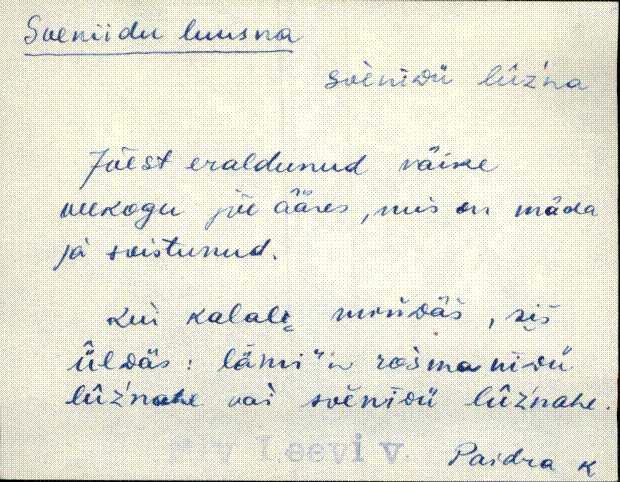 Soeniidu luusna
soènìdü lûz'na
Jõest eraldunud väike
veekogu jõe ääres, mis on mäda
ja soistunud.
Kui kalalę mińdäs, siš
üldäs: lämi"ü rośmanìdü
lûz'nahe vai soènìdü lûz'nahe.
v Leevi v
Paidra k